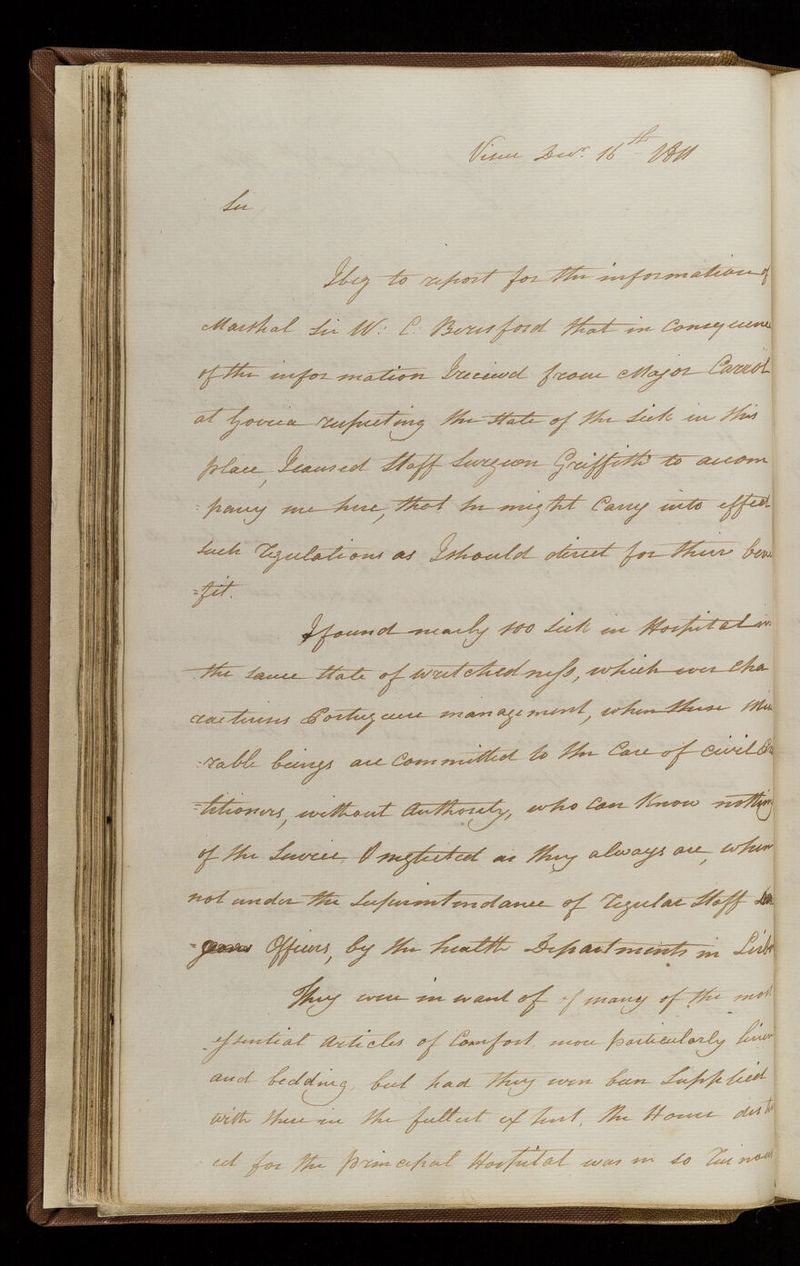 Viseu Decr. 16th 1811
Sir
I beg to report for the information of
Marshal Sir W: C: Beresford that in Consequence
of the information I recieved from Major Carrol
at Govea respecting the State of the Sick in this
place, I caused Staff Surgeon Griffith to accom
=pany me here, that he might Carry into effect
such regulations as I should direct for their bene
=fit.
I found nearly 100 Sick in Hospital in
the same State of wretchedness, which ever cha
racterises Portuguese management, when these Mise
=rable beings are Committed to the Care of civil Pra
=titioners, without Authority, who can Know nothing
of the Service, & neglected as they always are, when
not under the Superintendance of regular Staff
Officers, by the health Departments in Lisbo
They were in want of of many of the most
essential Articles of Comfort, more particularly linen
and bedding, but had they even been Supplied
with these in the fullest extent, the House dest
ed for the principal Hospital was in so ruinous